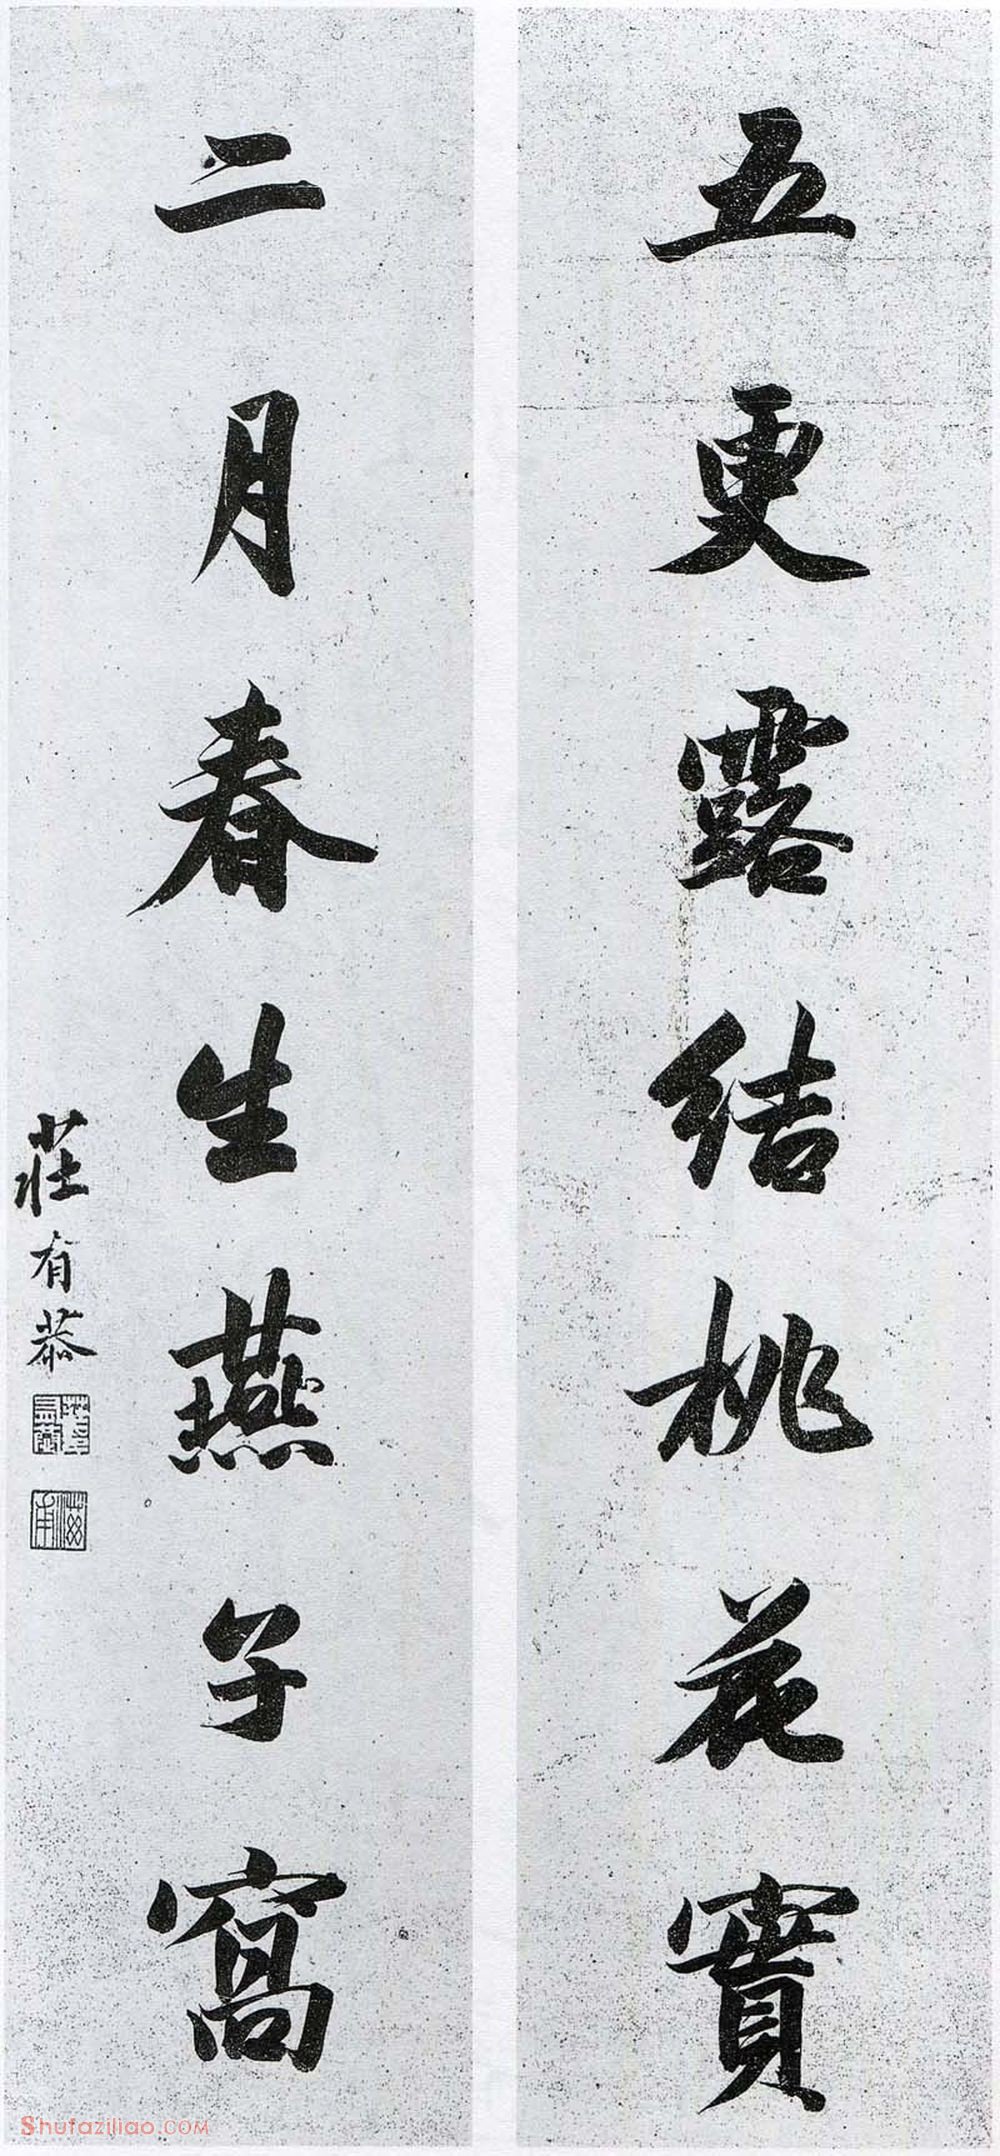 五更露結桃花實
二月春生燕子窩
莊有恭
Shufaziliao.COM